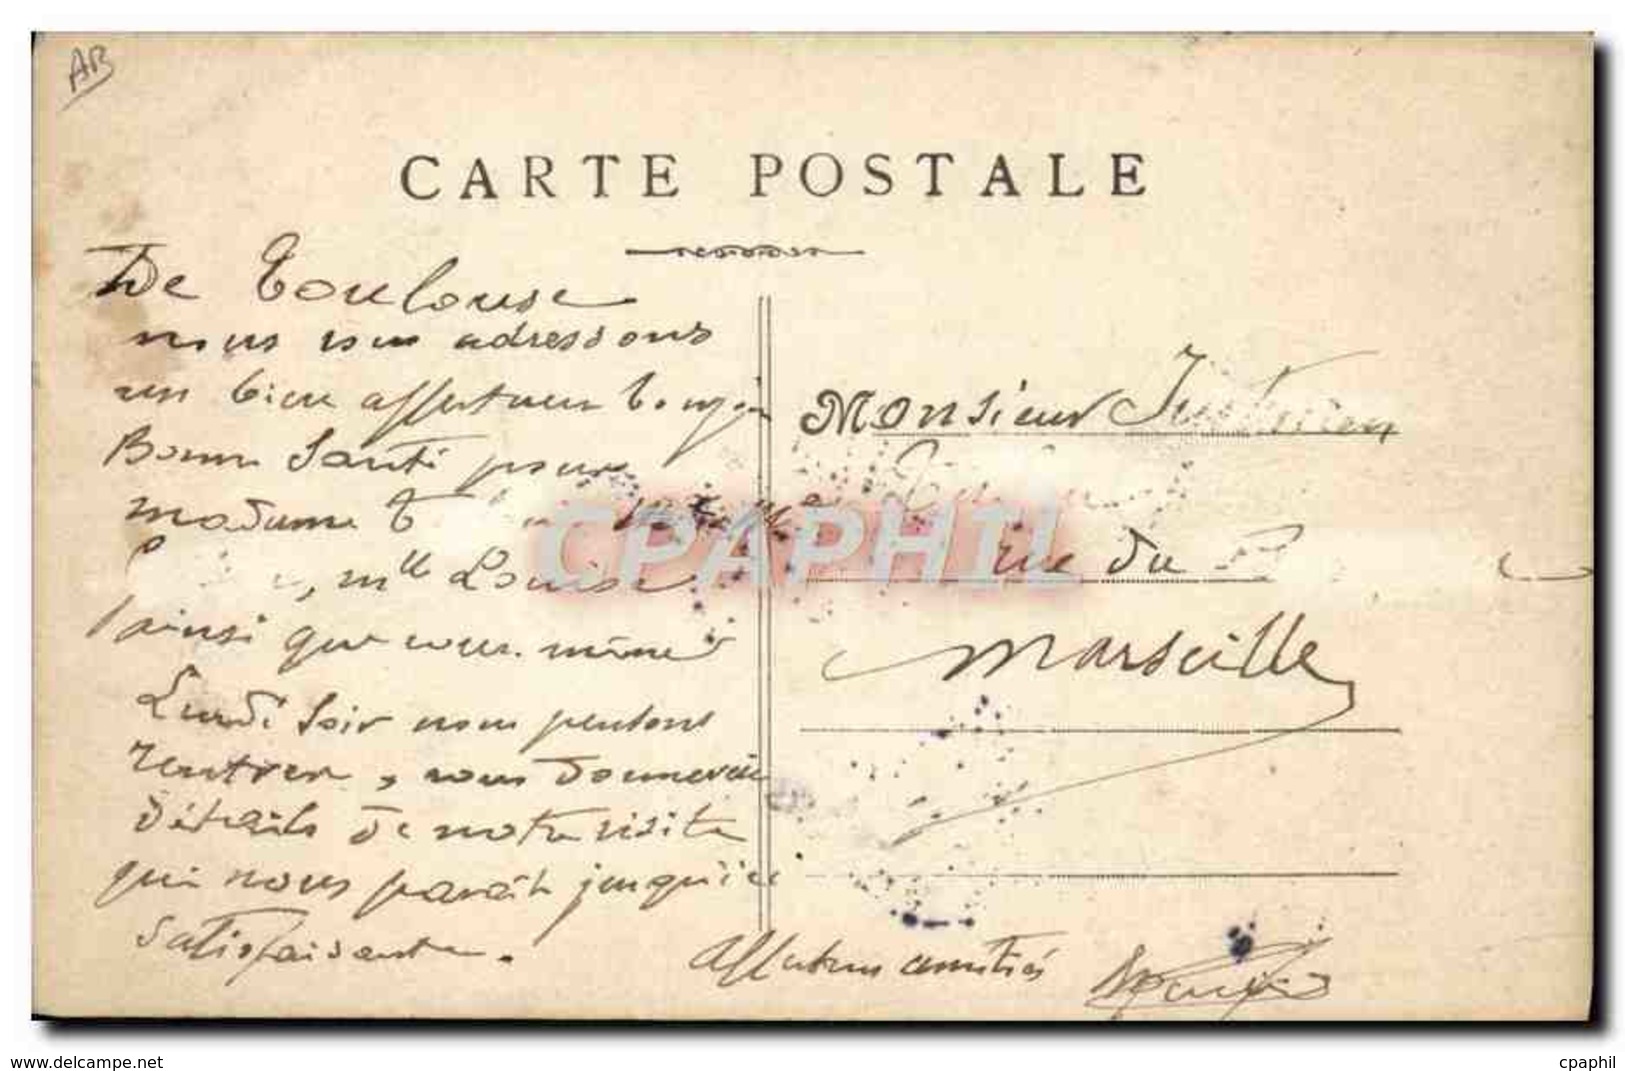 AB
CARTE POSTALE
De Toulouse
nous vous adressons
un bien affectueux bonjour
Bonne Santé pour
madame
, Mlle Louise
ainsi que vous même
Lundi Soir nous pensons
rentrer, vous donnerai
détails de notre visite
qui nous parait jusqu'ici
satisfaisante.
Affectueuses amitiés
Monsieur
rue du
Marseille
CPAPHIL
delcampe.net
cpaphil